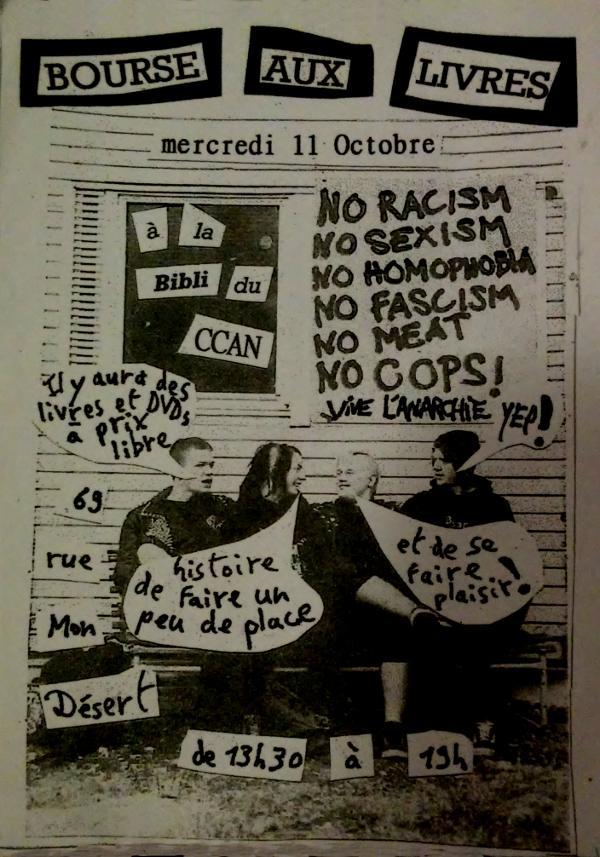 BOURSE AUX LIVRES
mercredi 11 Octobre
à la
Bibli du
CCAN
NO RACISM
NO SEXISM
NO HOMOPHOBIA
NO FASCISM
NO MEAT
NO COPS!
VIVE L'ANARCHIE
YEP!
Il y aura des
livres et DVDs
à prix
libre
histoire
de faire un
peu de place
et de se
faire
plaisir!
69
rue
Mon
Désert
de 13h30 à 19h